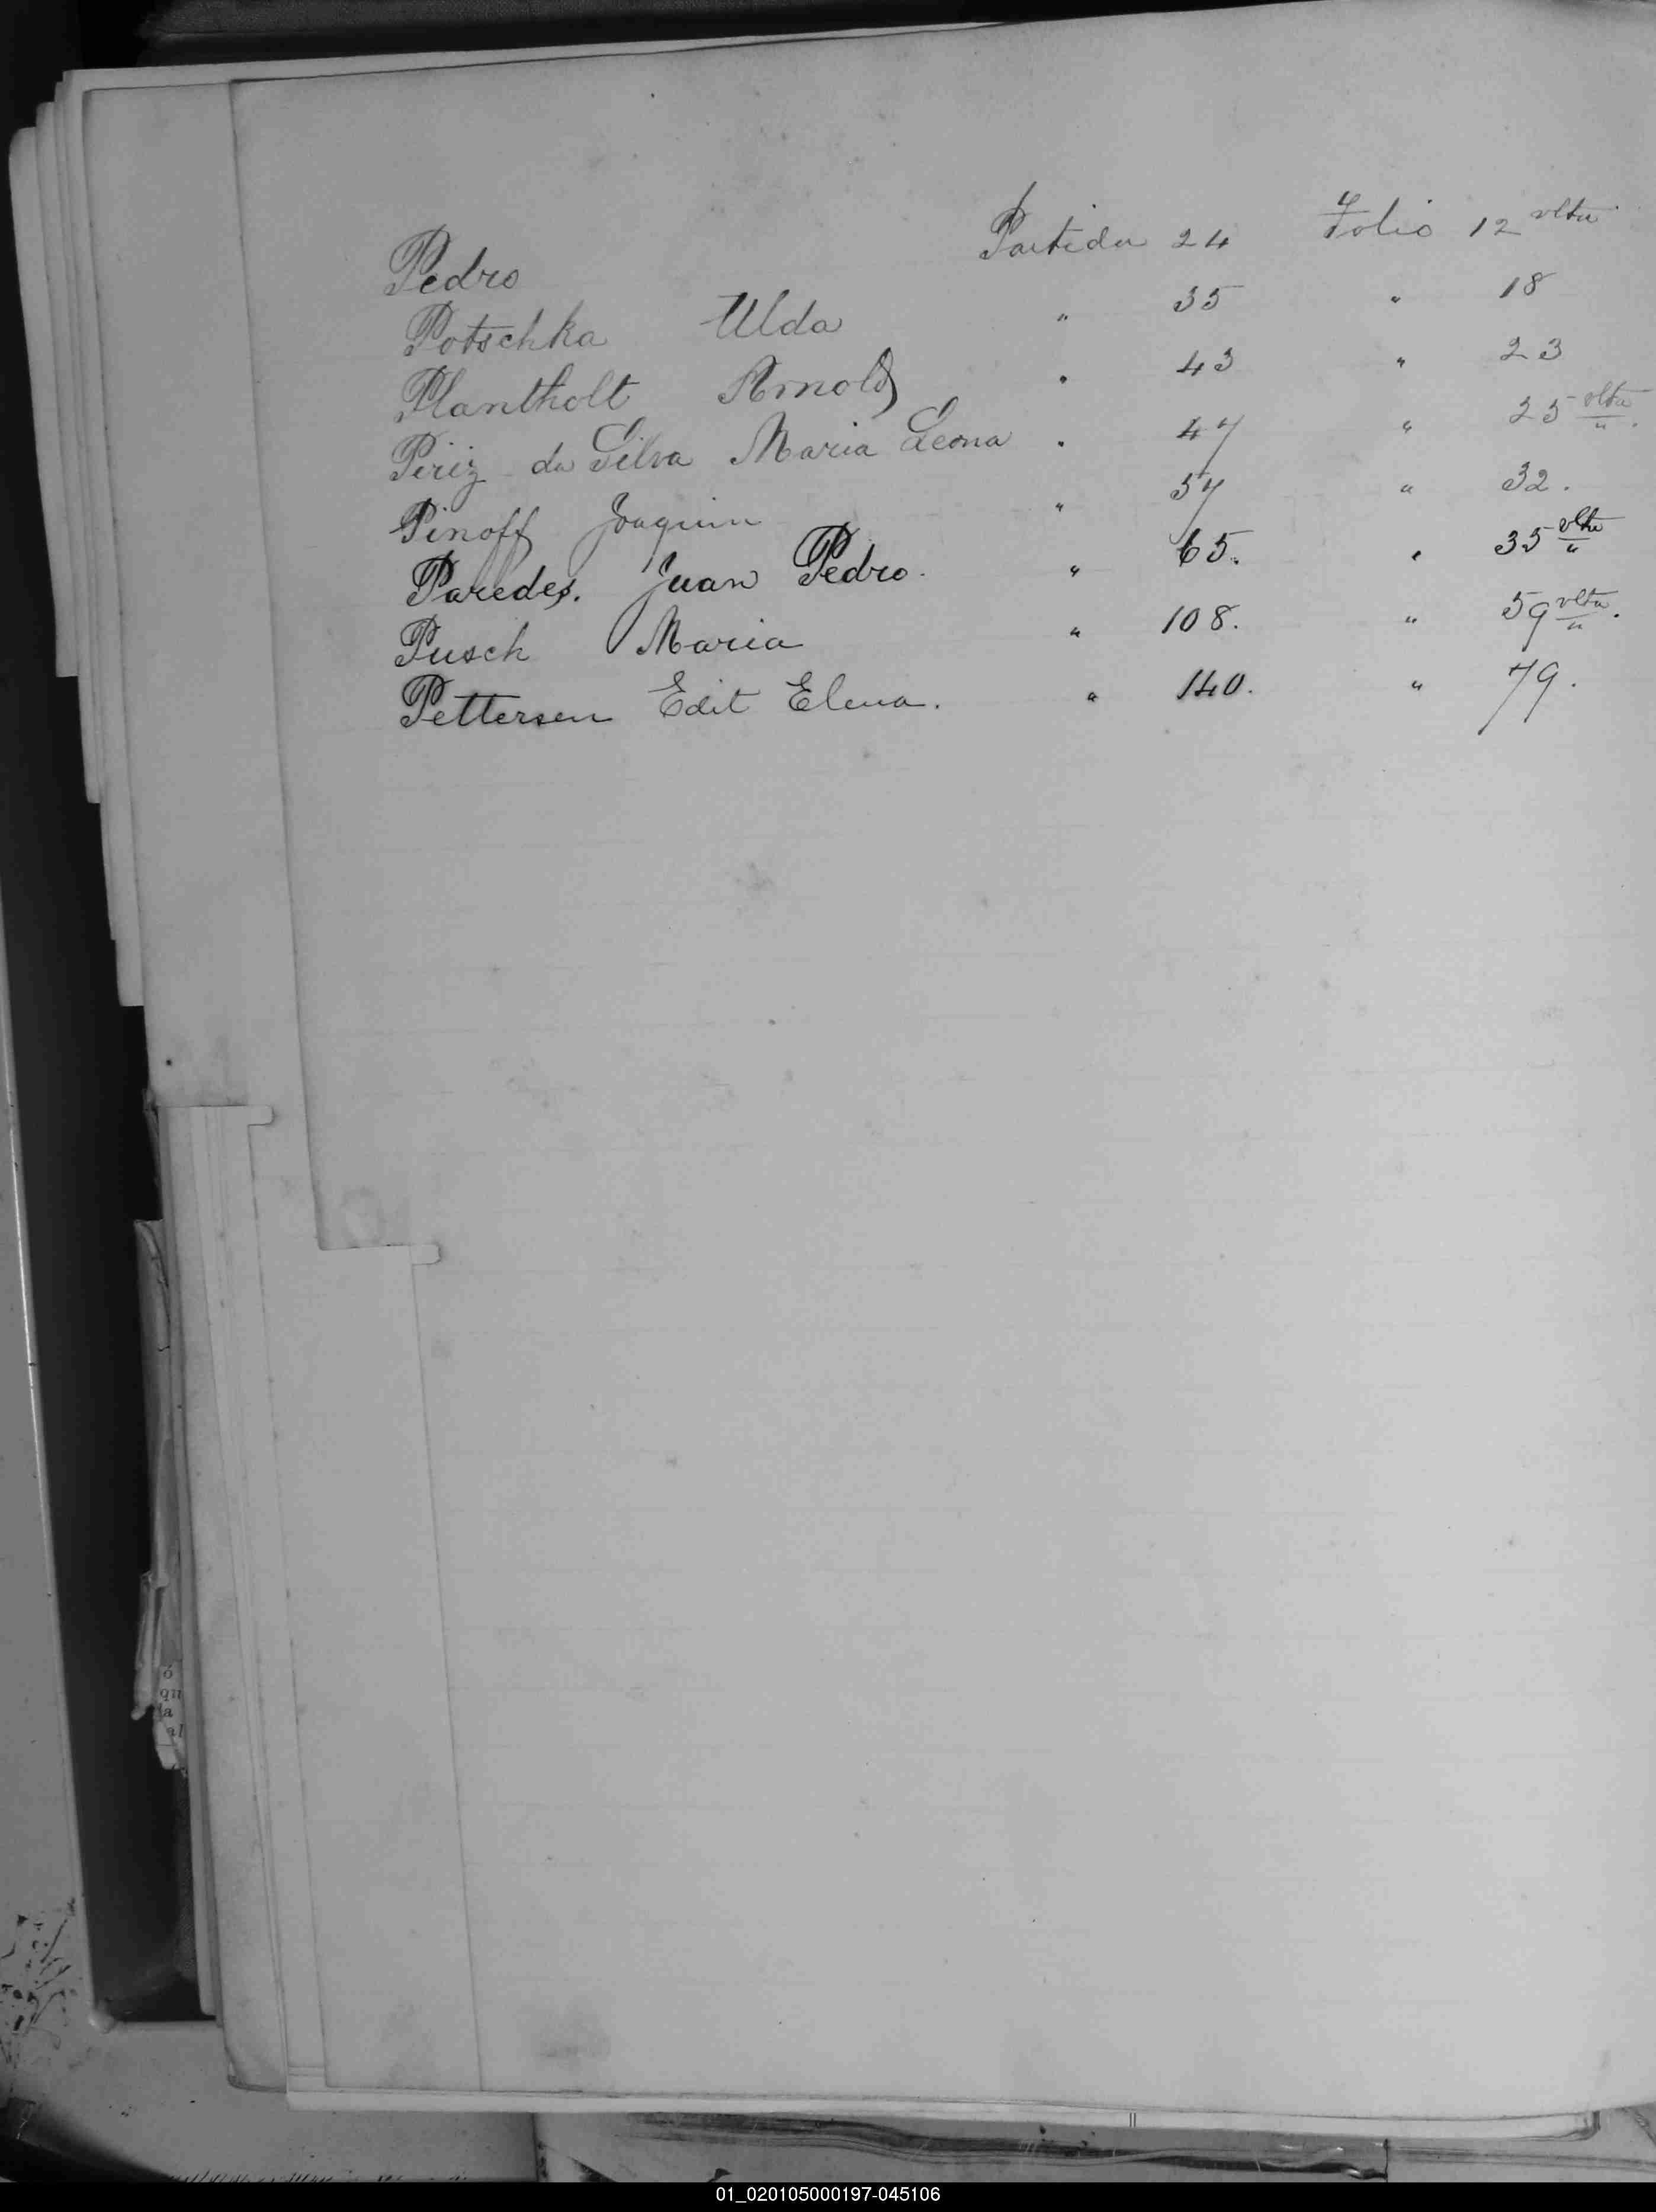 Pedro Partida 24 Folio 12 vlta
Potschka Ulda " 35 " 18
Plantholt Arnold " 43 " 23
Piriz da Silva Maria Leona " 47 " 25 vlta ".
Pinoff Joaquin " 57 " 32.
Paredes. Juan Pedro. " 65. " 35 vlta "
Pusch Maria " 108. " 59 vlta ".
Pettersen Edit Elena. " 140. " 79.
ó
qu
la
al
01_020105000197-045106